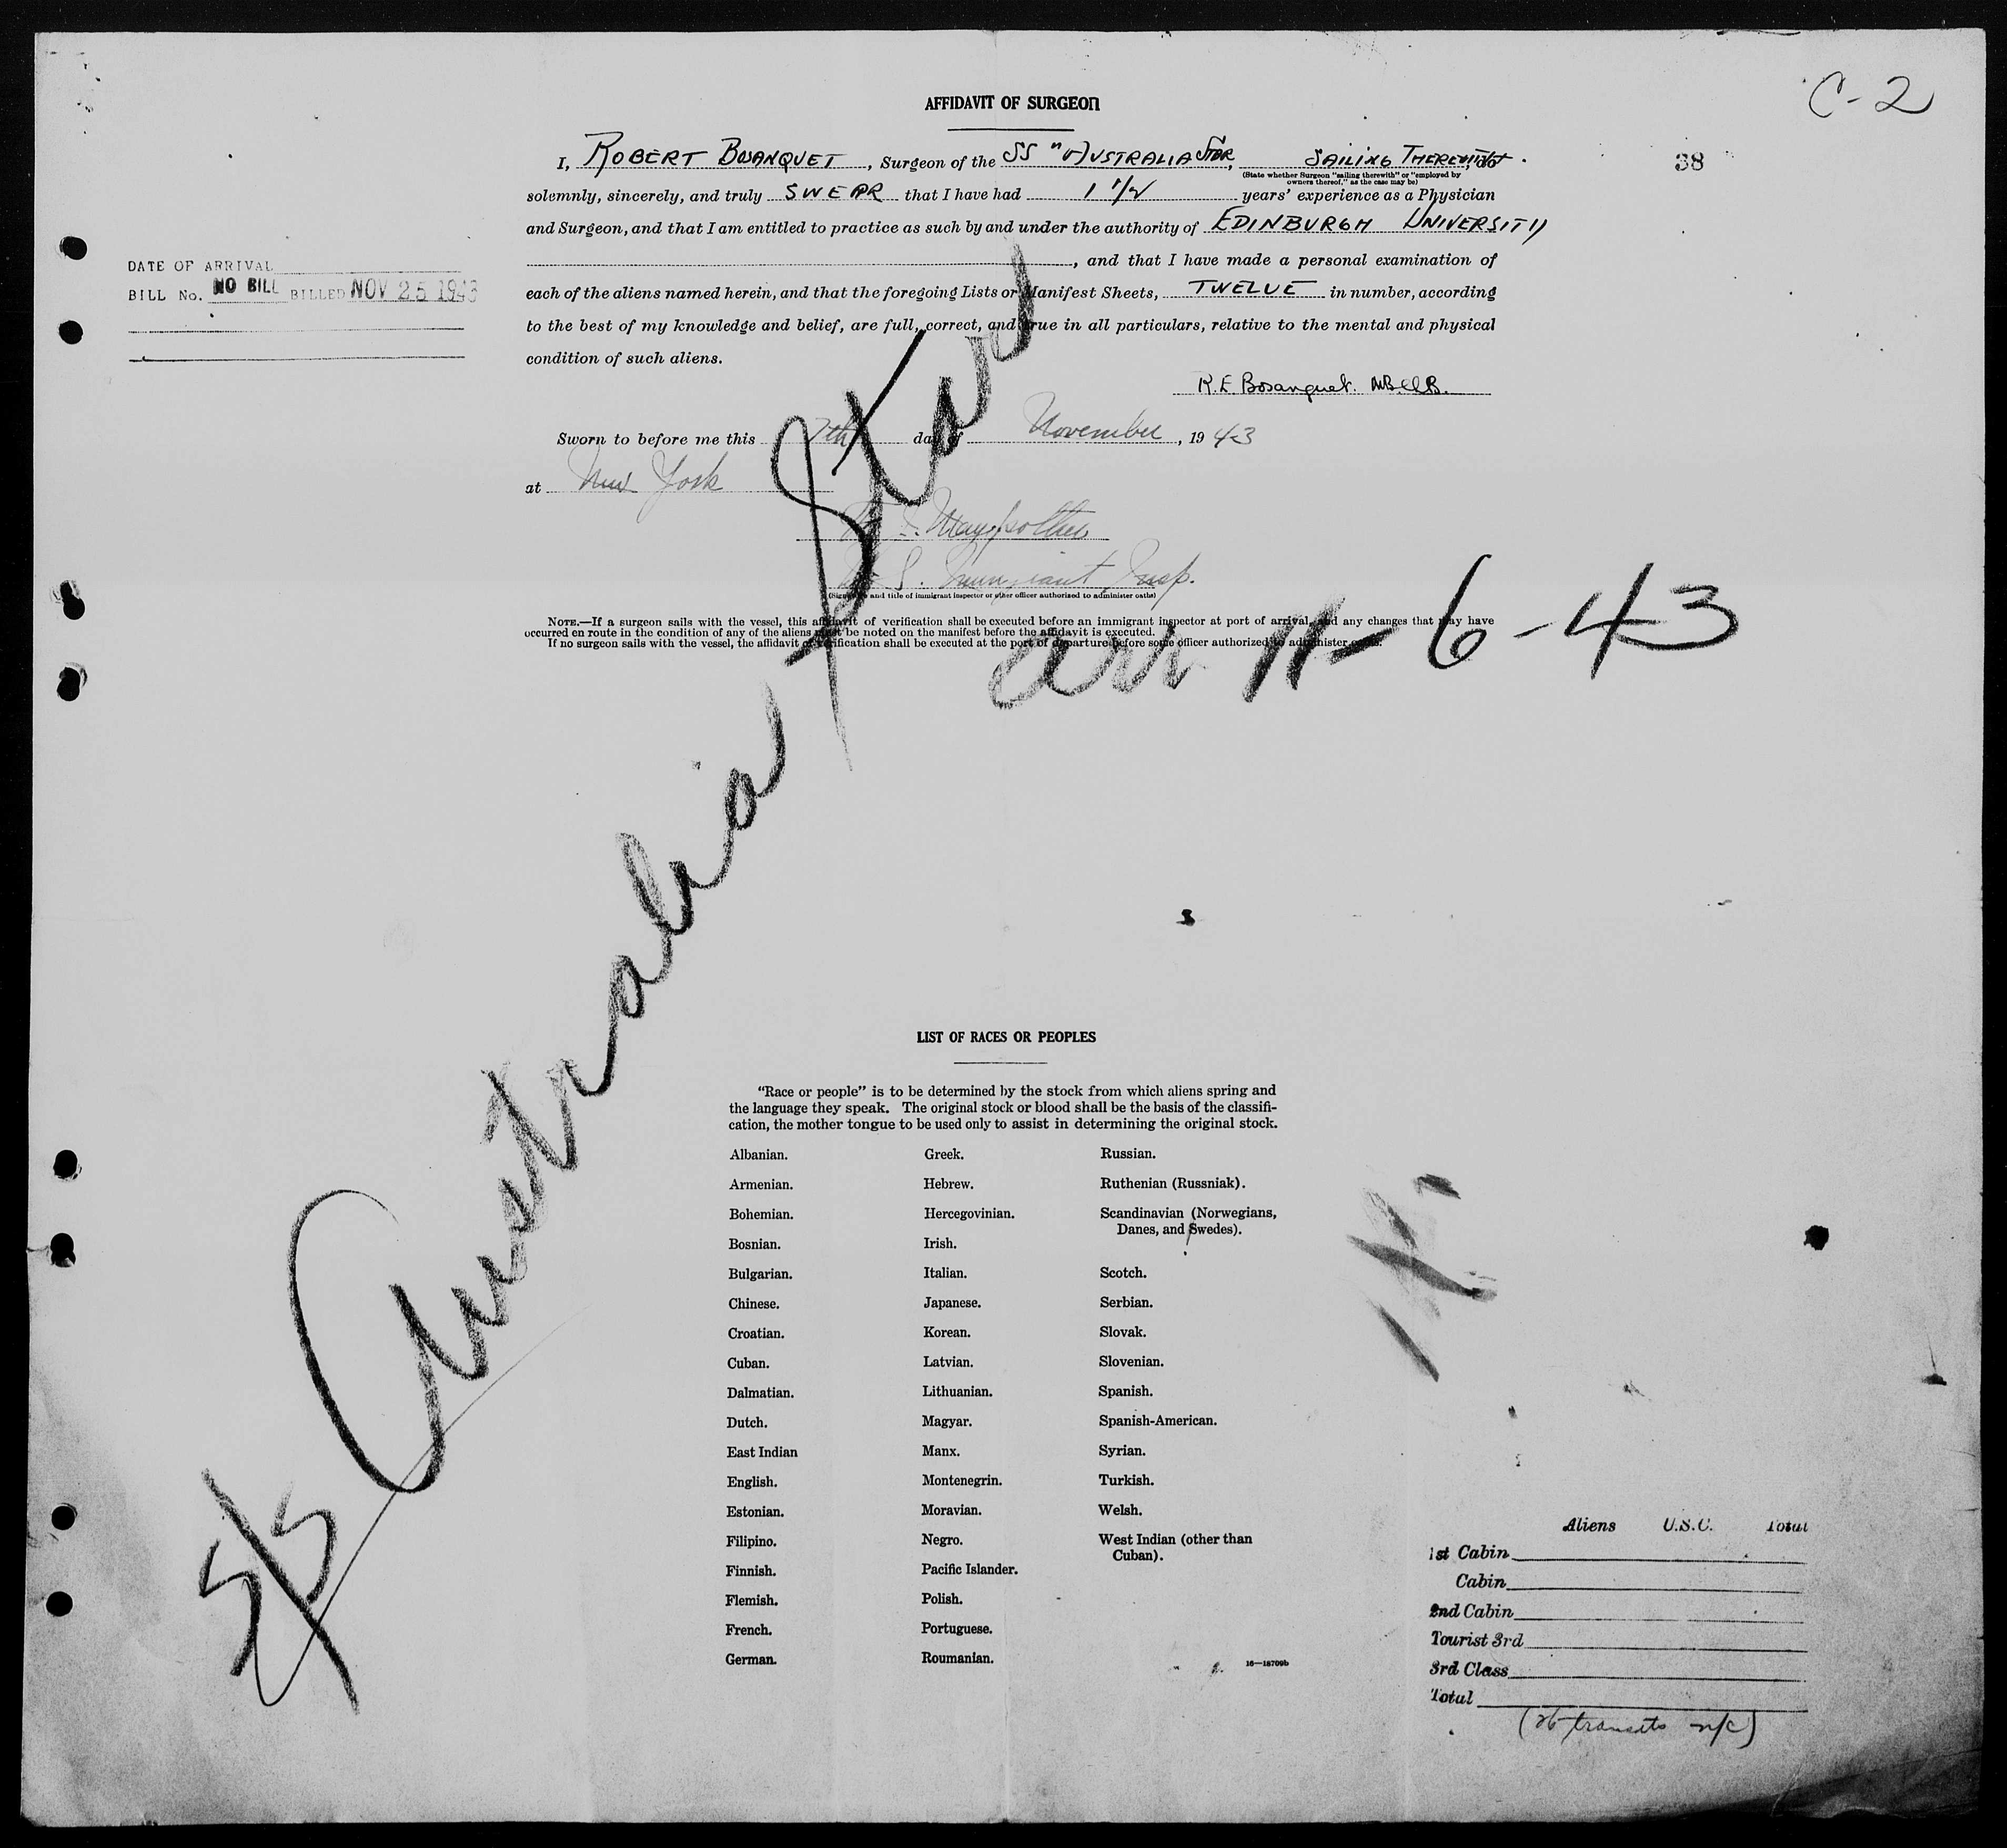 C-2
AFFIDAVIT OF SURGEON
I, ROBERT BOSANQUET, Surgeon of the SS "AUSTRALIA STAR, SAILING THEREWITH, do
38
(State whether Surgeon "sailing therewith" or "employed by
owners thereof," as the case may be)
solemnly, sincerely, and truly SWEAR that I have had 1 1/2 years' experience as a Physician
and Surgeon, and that I am entitled to practice as such by and under the authority of EDINBURGH UNIVERSITY
, and that I have made a personal examination of
each of the aliens named herein, and that the foregoing Lists or Manifest Sheets, TWELVE in number, according
to the best of my knowledge and belief, are full, correct, and true in all particulars, relative to the mental and physical
condition of such aliens.
DATE OF ARRIVAL
BILL No. NO BILL BILLED NOV 25 1943
R.E. Bosanquet. M.B. Ch.B.
Sworn to before me this 7th day of November, 1943
at New York
S. Immigrant Insp.
(Signature and title of immigrant inspector or other officer authorized to administer oaths)
NOTE.—If a surgeon sails with the vessel, this affidavit of verification shall be executed before an immigrant inspector at port of arrival, and any changes that may have
occurred en route in the condition of any of the aliens must be noted on the manifest before the affidavit is executed.
If no surgeon sails with the vessel, the affidavit of verification shall be executed at the port of departure before some officer authorized to administer oaths.
S/S Australia Star
arr 11-6-43
LIST OF RACES OR PEOPLES
"Race or people" is to be determined by the stock from which aliens spring and
the language they speak. The original stock or blood shall be the basis of the classifi-
cation, the mother tongue to be used only to assist in determining the original stock.
Albanian.
Armenian.
Bohemian.
Bosnian.
Bulgarian.
Chinese.
Croatian.
Cuban.
Dalmatian.
Dutch.
East Indian
English.
Estonian.
Filipino.
Finnish.
Flemish.
French.
German.
Greek.
Hebrew.
Hercegovinian.
Irish.
Italian.
Japanese.
Korean.
Latvian.
Lithuanian.
Magyar.
Manx.
Montenegrin.
Moravian.
Negro.
Pacific Islander.
Polish.
Portuguese.
Roumanian.
Russian.
Ruthenian (Russniak).
Scandinavian (Norwegians,
Danes, and Swedes).
Scotch.
Serbian.
Slovak.
Slovenian.
Spanish.
Spanish-American.
Syrian.
Turkish.
Welsh.
West Indian (other than
Cuban).
16—18709b
Aliens U.S.C. Total
1st Cabin
Cabin
2nd Cabin
Tourist 3rd
3rd Class
Total
(26 transits n/c)